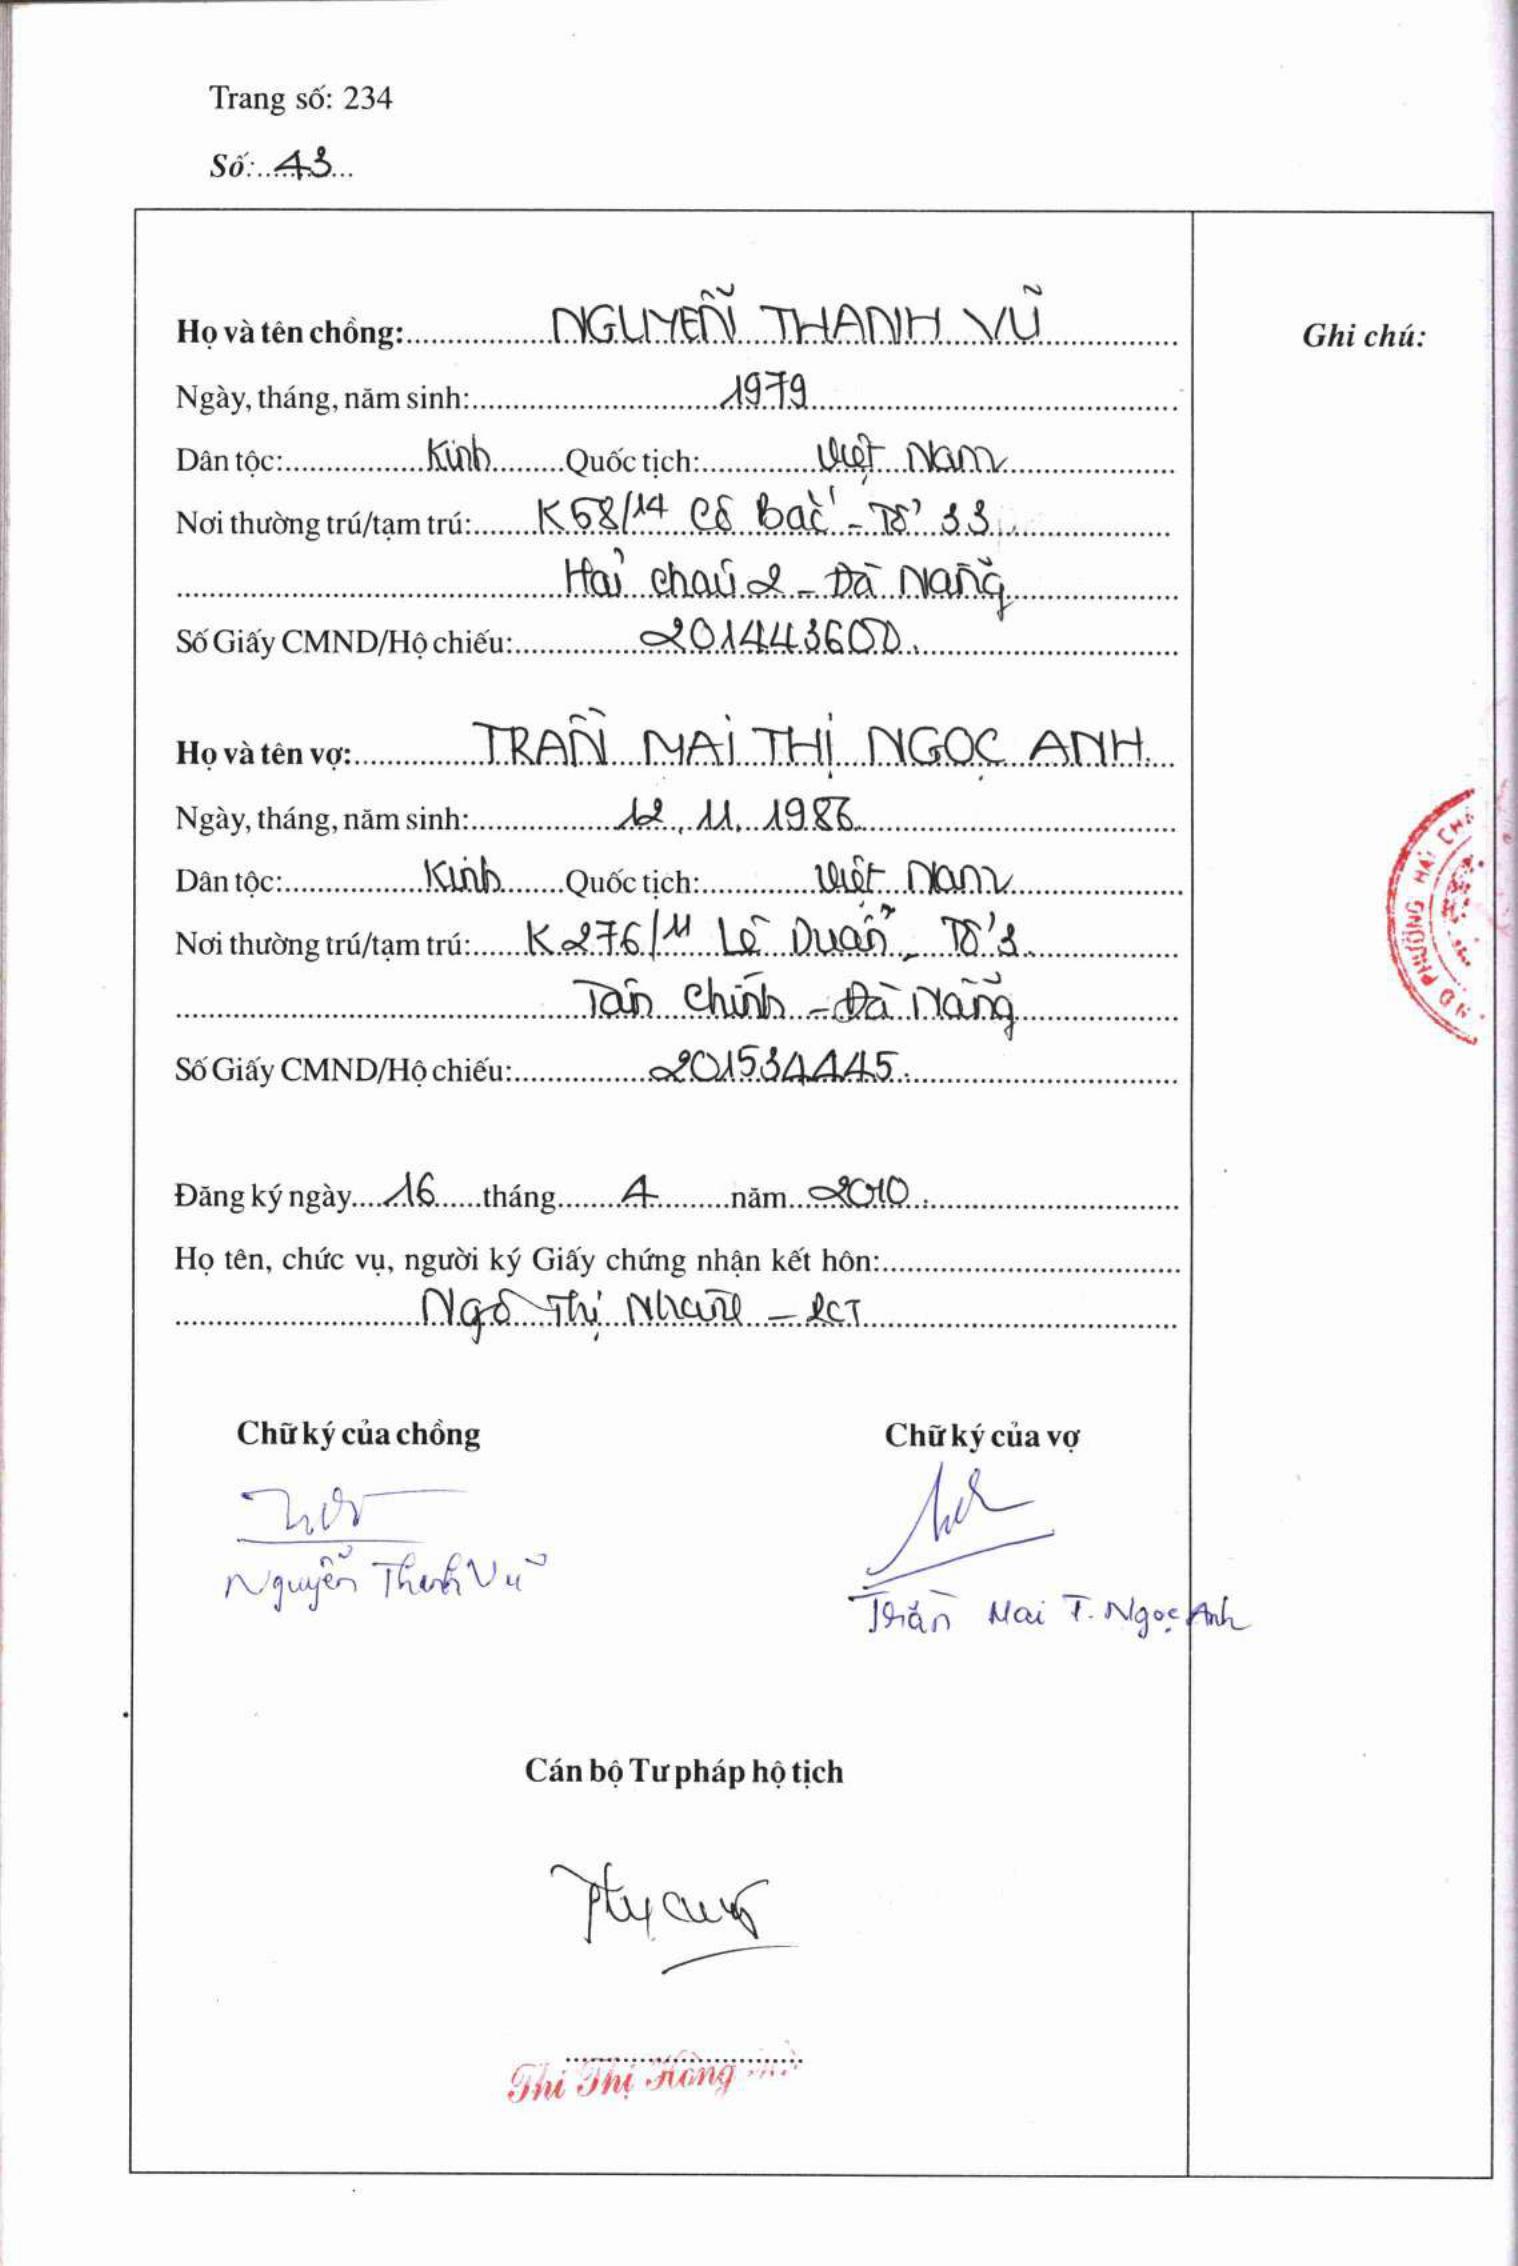 Trang số: 234
Số: 43
Họ và tên chồng: NGUYỄN THANH VŨ
Ghi chú:
Ngày, tháng, năm sinh: 1979
Dân tộc: Kinh Quốc tịch: Việt Nam
Nơi thường trú/tạm trú: K68/14 Cô Bắc - Tổ 33
Hải Châu 2 - Đà Nẵng
Số Giấy CMND/Hộ chiếu: 201443600
Họ và tên vợ: TRẦN MAI THỊ NGỌC ANH
Ngày, tháng, năm sinh: 12.11.1986
Dân tộc: Kinh Quốc tịch: Việt Nam
Nơi thường trú/tạm trú: K276/11 Lê Duẩn, Tổ 3
Tân Chính - Đà Nẵng
Số Giấy CMND/Hộ chiếu: 201534445
PHƯỜNG HẢI CH
Đăng ký ngày 16 tháng 4 năm 2010
Họ tên, chức vụ, người ký Giấy chứng nhận kết hôn:
Ngô Thị - PCT
Chữ ký của chồng Chữ ký của vợ
Nguyễn Thanh Vũ
Trần Mai T. Ngọc Anh
Cán bộ Tư pháp hộ tịch
Thi Thị Hồng